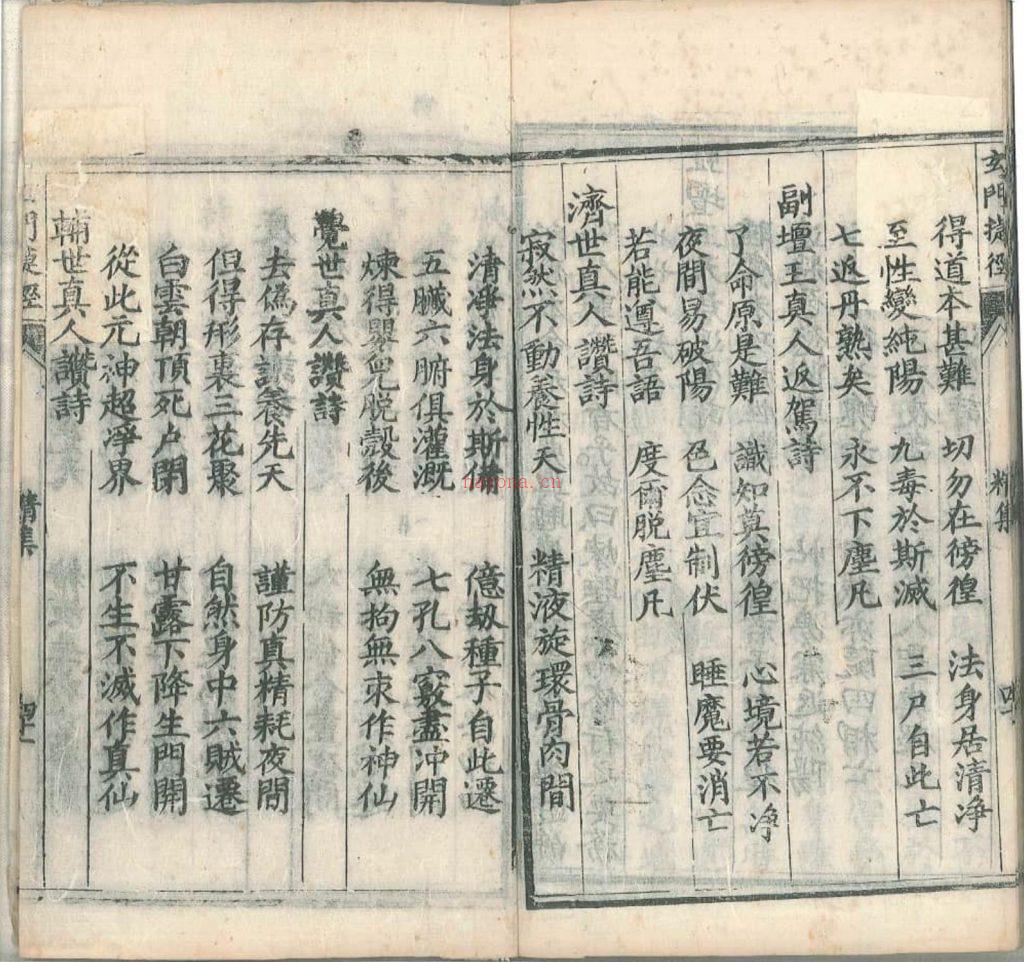 玄門捷徑 精集
得道本甚難 切勿在徬徨 法身居清净
至性變純陽 九毒於斯滅 三尸自此亡
七返丹熟矣 永不下塵凡
副壇王真人返駕詩
了命原是難 識知莫徬徨 心境若不净
夜間易破陽 色念宜制伏 睡魔要消亡
若能遵吾語 度爾脱塵凡
濟世真人讚詩
寂然不動養性天 精液旋環骨肉間
清净法身於斯備 億刼種子自此遷
五臟六腑俱灌溉 七孔八竅盡冲開
煉得嬰兒脱殼後 無拘無束作神仙
覺世真人讚詩
去僞存誠養先天 謹防真精耗夜間
但得形裏三花聚 自然身中六賊遷
白雲朝頂死户閉 甘露下降生門開
從此元神超凈界 不生不滅作真仙
輔世真人讚詩
門捷徑 精集
nayona.cn